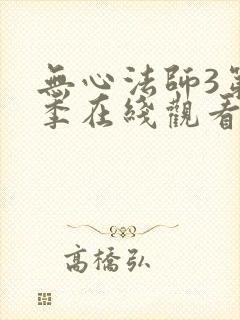 無心法師3第
季在綫觀看
高橋弘